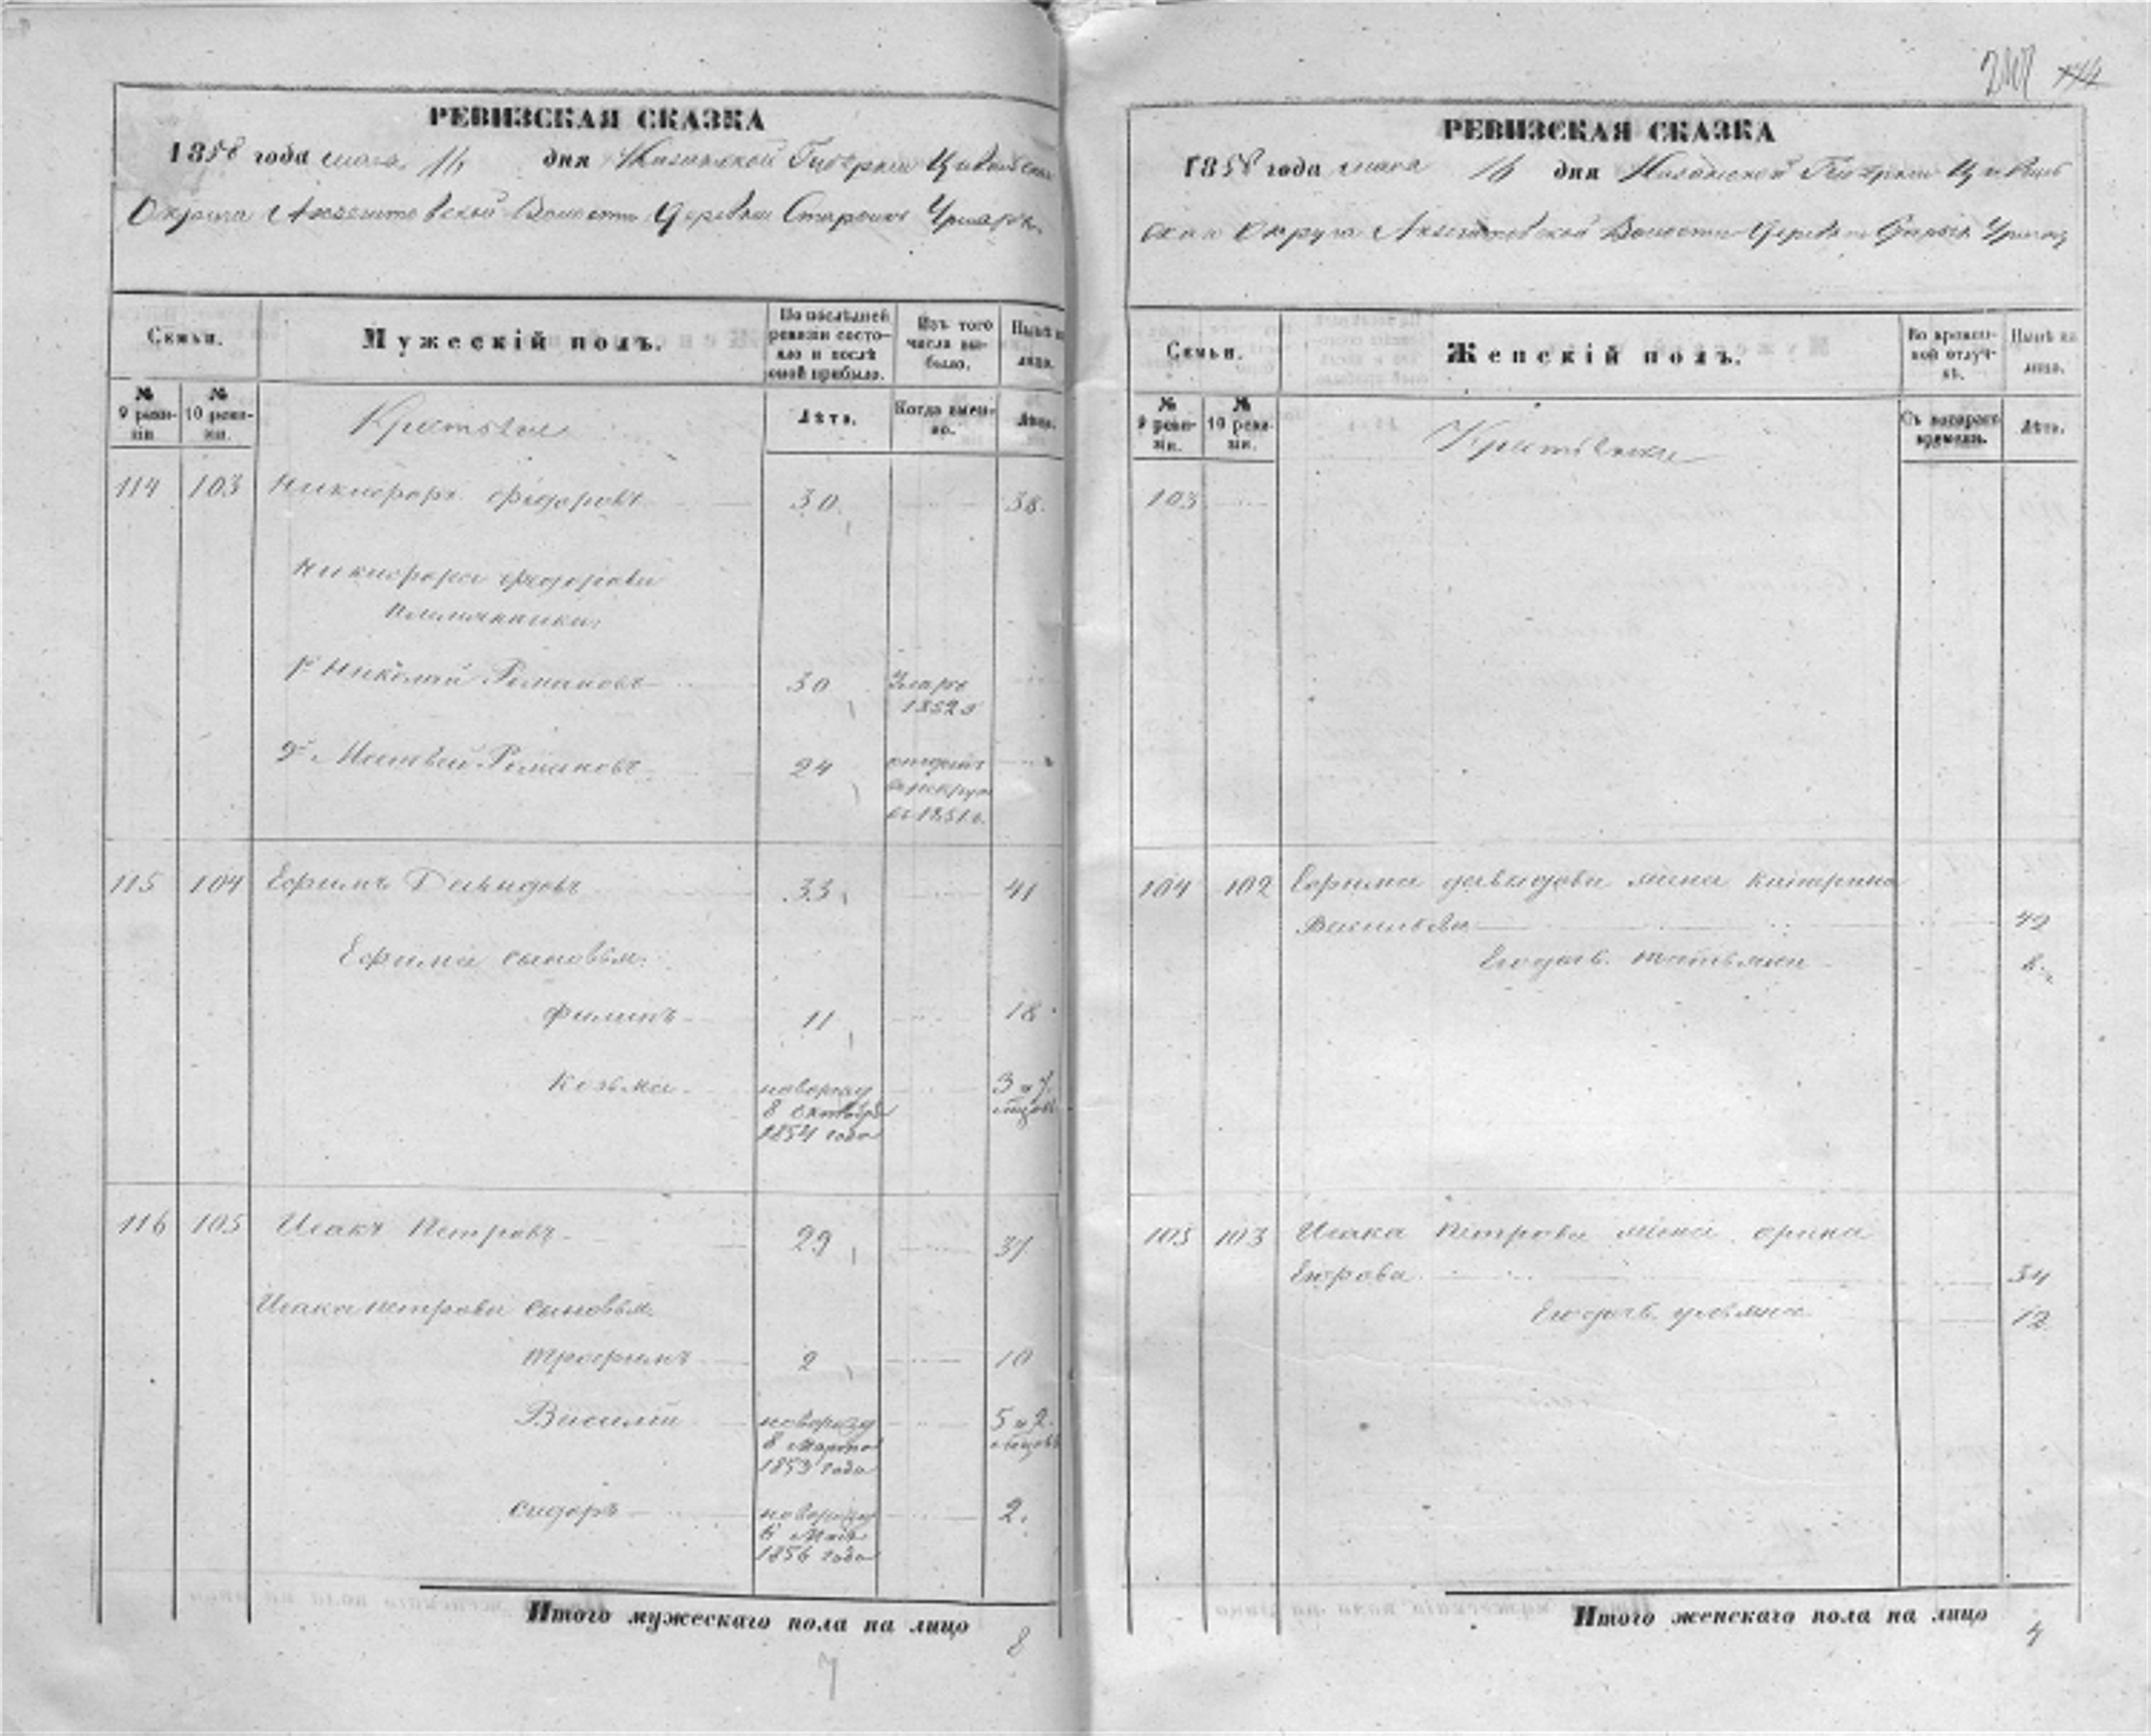 РЕВИЗСКАЯ СКАЗКА
1858 года мая 16 дня Казанской Губернии Цивильскаго
Округа Волости Деревни Старыхъ
Семьи.
Мужескій полъ.
По послѣдней ревизіи состояло и послѣ оной прибыло.
Изъ того числа выбыло.
Нынѣ на лицо.
№ 9 ревизіи.
№ 10 ревизіи.
Лѣта.
Когда именно.
Лѣта.
114 103 Никифоръ Федоровъ 30 38
Никифора Федорова
племянники:
1й Николай Романовъ 30 1852 г
2й Матвей Романовъ 24 отданъ
въ рекруты
въ 1851 г.
115 104 Ефимъ Давыдовъ 33 41
Ефима сыновья.
Филипъ 11 18
Козьма 3 и 7
8 октября
1854 года
116 105 Исакъ Петровъ 29 37
Исака Петрова сыновья.
Трофимъ 2 10
Василій 5 и 2
8 Марта
1853 года
Сидоръ 2.
6 Мая
1856 года
Итого мужескаго пола на лицо 8
7
РЕВИЗСКАЯ СКАЗКА
1858 года мая 16 дня Казанской Губерніи Цивиль
скаго Округа Волости Деревни Старыхъ
Семьи.
Женскій полъ.
Во временной отлучкѣ.
Нынѣ на лицо.
№ 9 ревизіи.
№ 10 ревизіи.
Съ котораго времени.
Лѣта.
103
104 102 Ефима Давыдова жена Катерина
Васильева 42
Его дочь Татьяна
105 103 Исака Петрова жена Орина
Егорова 34
Его дочь Ульяна 12
Итого женскаго пола на лицо 4